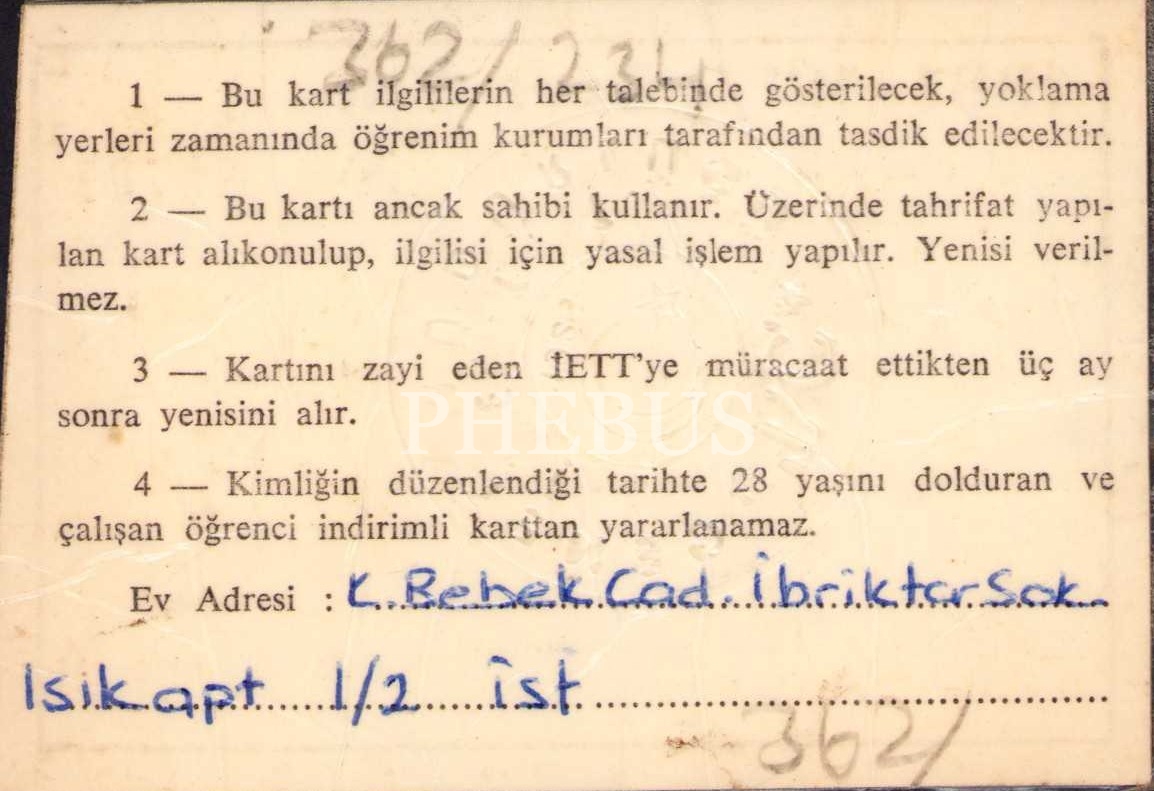 362/234
1 — Bu kart ilgililerin her talebinde gösterilecek, yoklama
yerleri zamanında öğrenim kurumları tarafından tasdik edilecektir.
2 — Bu kartı ancak sahibi kullanır. Üzerinde tahrifat yapı-
lan kart alıkonulup, ilgilisi için yasal işlem yapılır. Yenisi veril-
mez.
3 — Kartını zayi eden İETT'ye müracaat ettikten üç ay
sonra yenisini alır.
PHEBUS
4 — Kimliğin düzenlendiği tarihte 28 yaşını dolduran ve
çalışan öğrenci indirimli karttan yararlanamaz.
Ev Adresi : K. Bebek Cad. İbriktar Sok.
Isık apt 1/2 ist
362/